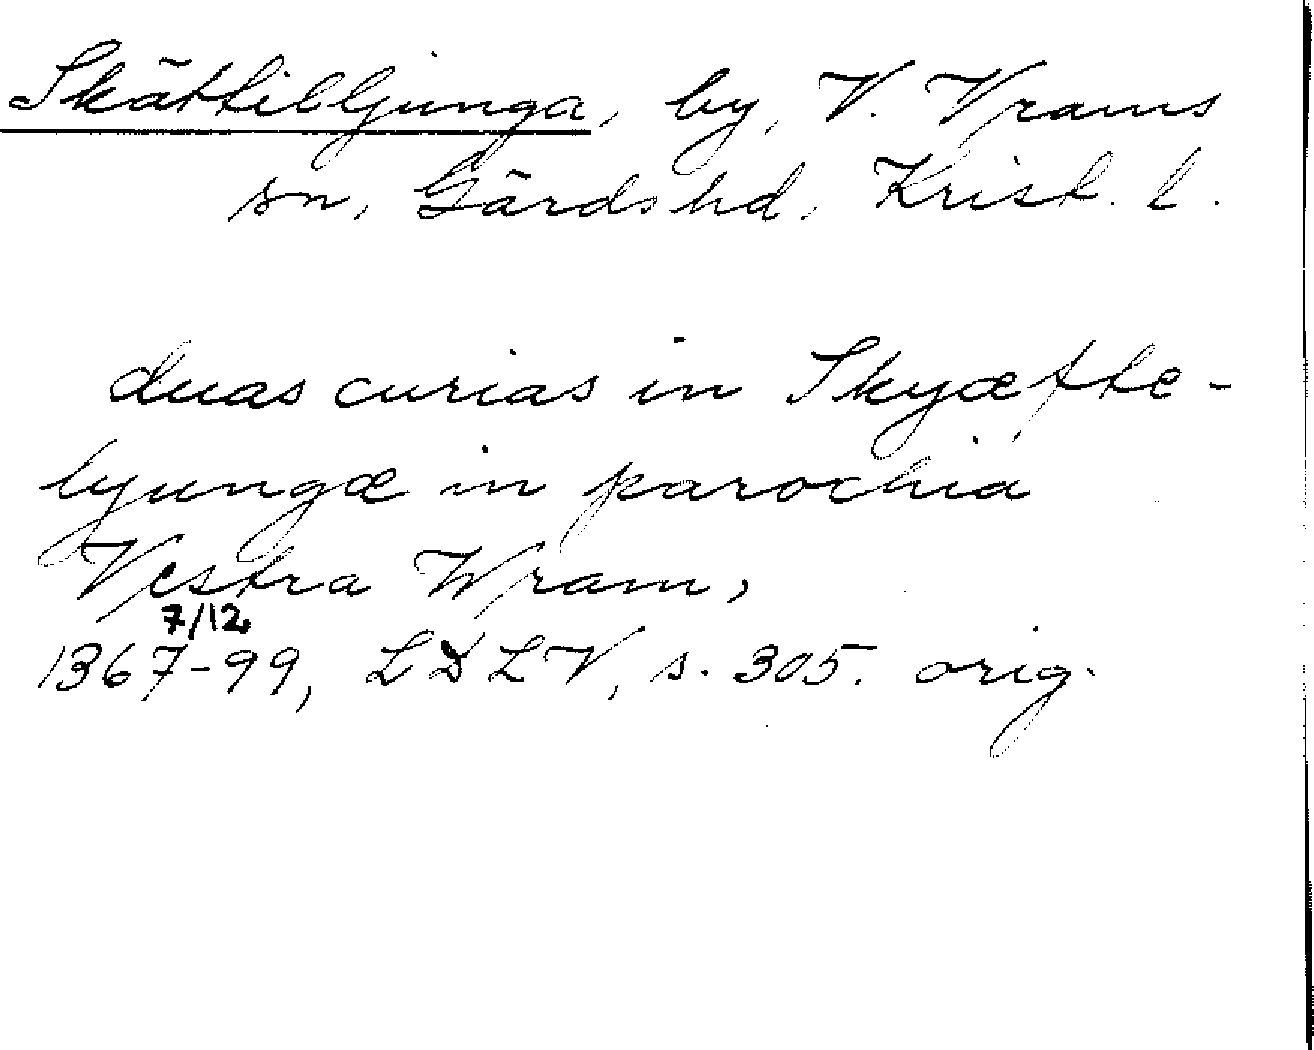 Skättilljunga, by, V. Vrams
sn, Gärds hd, Krist. l.
duas curias in Skyætte-
lyungæ in parochia
Vestra Wram,
7/12
1367-99, LDLV, s. 305. orig.